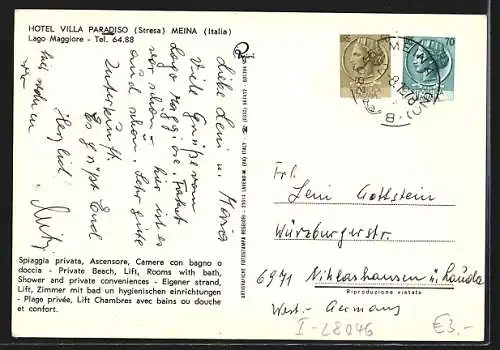 HOTEL VILLA PARADISO (Stresa) MEINA (Italia)
Lago Maggiore - Tel. 64.88
Liebe Leni u. Maria
Viele Grüße vom
Lago Maggiore. Fahrt
war schön. hier ist es
auch schön. Sehr gute
Unterkunft.
Es grüßt Euch
Herzlich
Spiaggia privata, Ascensore, Camere con bagno o
doccia - Private Beach, Lift, Rooms with bath,
Shower and private conveniences - Eigener strand,
Lift, Zimmer mit bad un hygienischen einrichtungen
- Plage privée, Lift Chambres avec bains ou douche
et confort.
MEINA
70
Frl.
Leni Gottstein
Würzburgerstr.
6971 Niklashausen ü. Lauda
Riproduzione vietata
West-Germany
I-L8046
€3.-